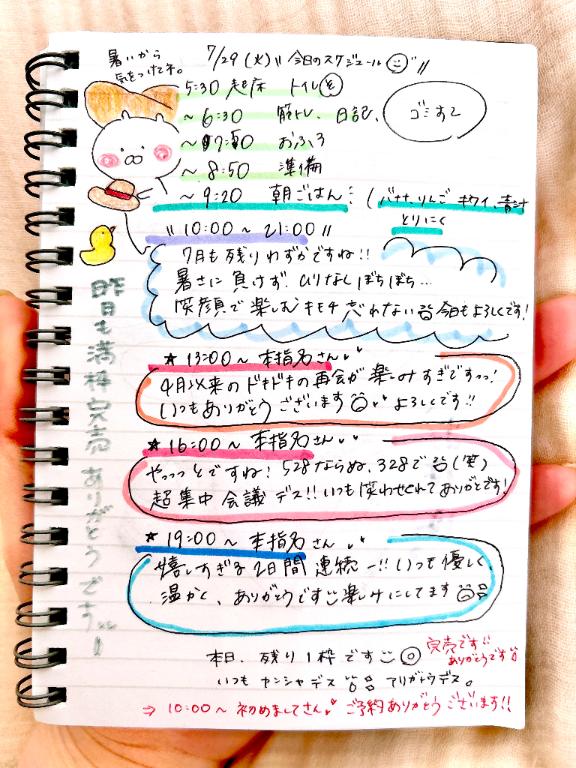 暑いから
気をつけてネ。
7/29(火)〃今日のスケジュール〃
5:30 起床 トイレ
~6:30 筋トレ、日記、
ゴミすて
~7:50 おふろ
~8:50 準備
~9:20 朝ごはん (バナナ、りんご キウイ、青汁
とりにく
〃10:00~21:00〃
7月も残りわずかですね!!
暑さに負けず ひりなしぼちぼち…
笑顔で楽しむキモチ忘れない 今日もよろしくです!
★13:00~本指名さん
4月以来のドキドキの再会が楽しみすぎですっっ!
いつもありがとうございます よろしくです!!
★16:00~本指名さん
やっっっとですね! 528ならぬ、328で (笑)
超集中会議デス!! いつも笑わせてくれてありがとです!
★19:00~本指名さん
嬉しすぎる2日間連続ー!! いつも優しく
温かく、ありがとうです 楽しみにしてます
本日、残り1枠です
完売です!!
ありがとうです
いつもカンシャデス アリガトウデス。
⇒10:00~初めましてさん ご予約ありがとうございます!!
昨日も満枠完売 ありがとうです